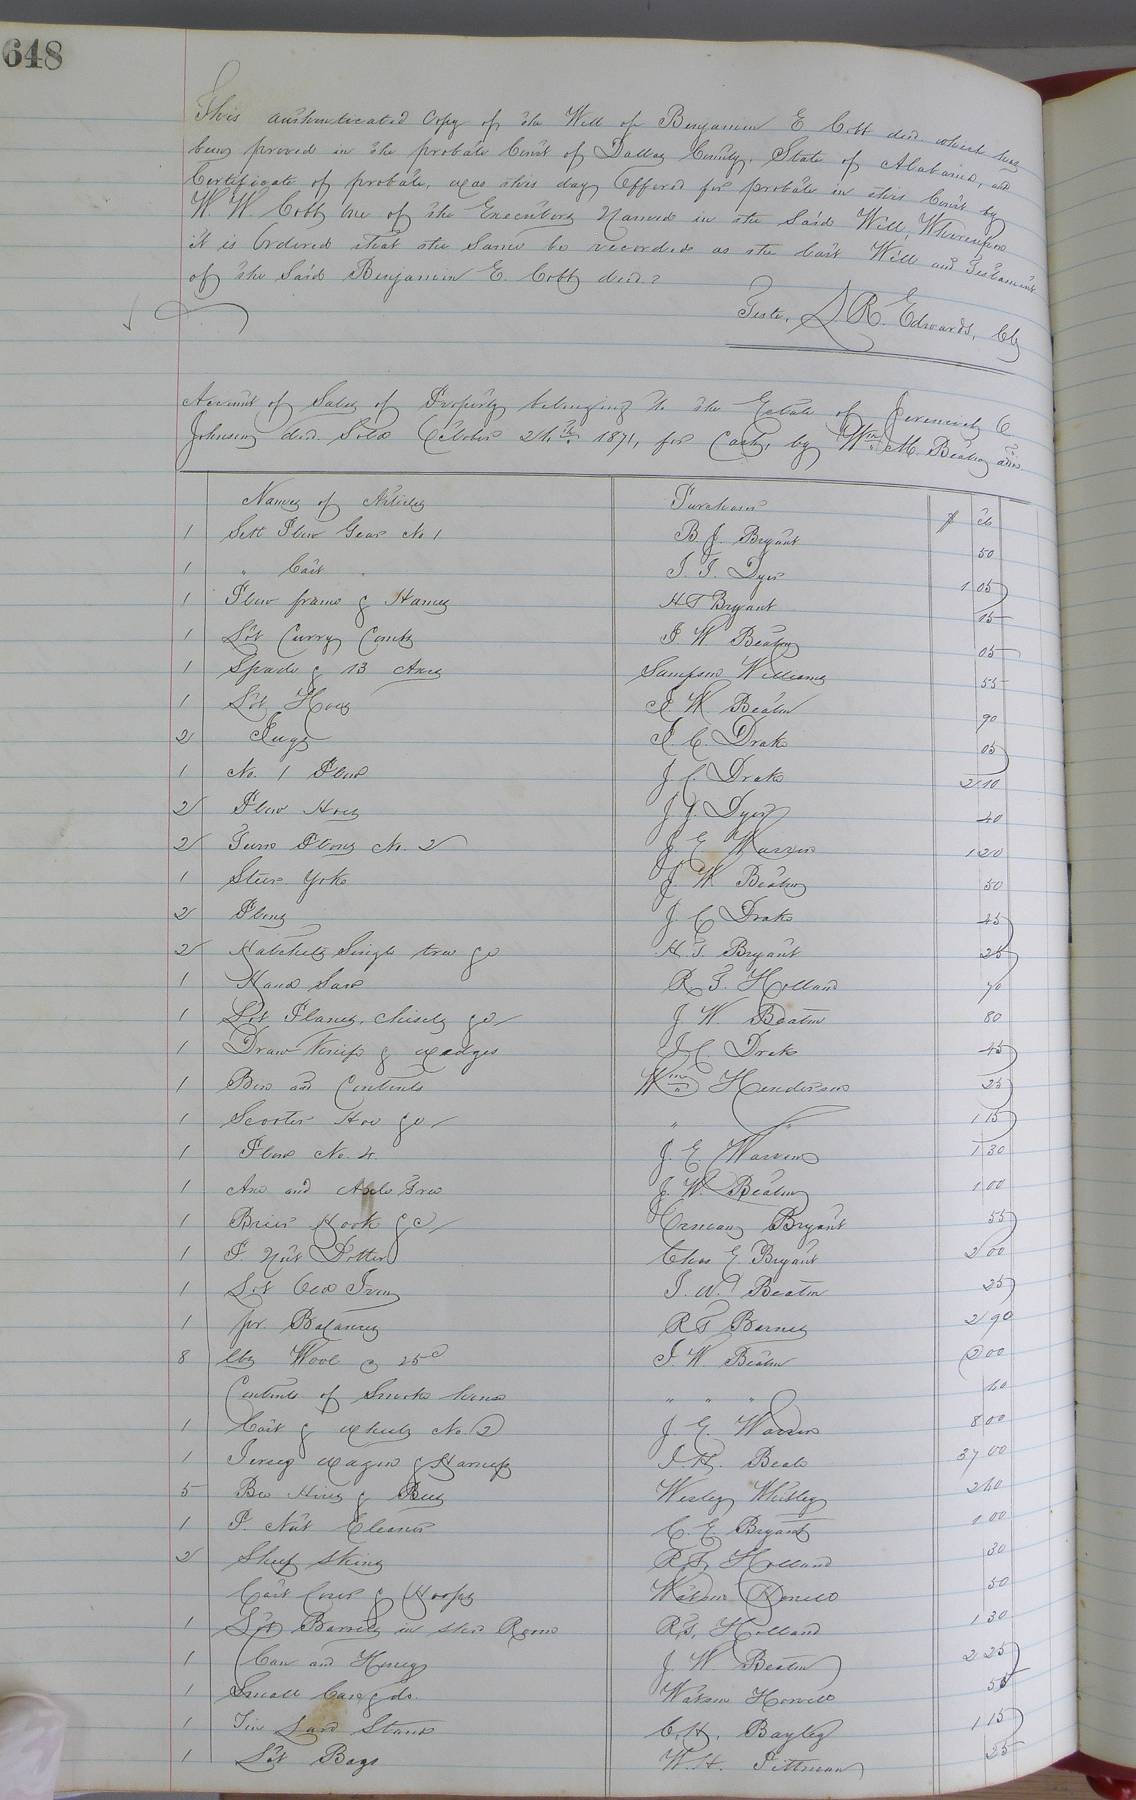 648
This authenticated Copy of the Will of Benjamin E Cobb decd which has
been proved in the probate Court of Dallas County, State of Alabama, and
Certificate of probate, was this day offered for probate in this Court by
W. W. Cobb one of the Executors Named in the Said Will, Whereupon
it is Ordered that the Same be recorded as the last Will and Testament
of the Said Benjamin E. Cobb decd.
Teste, L. R. Edwards, Clk
Account of Sales of Property belonging to the Estate of Jeremiah C
Johnson decd. Sold October 24th 1871, for Cash, by Wm. M. Beaton adm
Names of Articles Purchaser $ cts
1 Sett Plow Gear No 1 B. J. Bryant 50
1 " Cart " Dyer 1 05
1 Plow frame & Hames H T Bryant 15
1 Lot Curry Combs J W Beaton 05
1 Spade & 13 Axes Sampson Williams 55
1 Lot Hoes J. W Beaton 90
2 Jugs J. C. Drake 05
1 No. 1 Plow J. C. Drake 2 10
2 Plow Hoes J. J. Dyer 40
2 Turn Plows No. 2 J. E. Warren 1 20
1 Steer Yoke J. W Beaton 50
2 Plows J. C Drake 45
2 Hatchets Single tree &c H. T. Bryant 25
1 Hand Saw R T. Holland 70
1 Lot Planes, chisels &c J. W. Beaton 80
1 Draw Knife & wedges J. C. Drake 45
1 Box and Contents Wm Henderson 25
1 Scooter Hoe &c " " 1 15
1 Plow No. 4. J. E. Warren 1 30
1 Axe and Axle Tree J. W. Beaton 1 00
1 Brier Hook &c Bryant 55
1 P. Nut Potter Chas E Bryant 2 00
1 Lot Old Iron J. W. Beaton 25
1 pr Balances R T Barnes 2 90
8 lbs Wool @ 25c J. W. Beaton 2 00
Contents of Smoke house " " " 40
1 Cart & wheels No. 2 J. E. Warren 8 00
1 Jersey wagon & Harness J. H. Beale 37 00
5 Bee Hives & Bees Wesley Whitley 2 40
1 P. Nut Cleaner C. E. Bryant 1 00
2 Sheep Skins R. T. Holland 30
Cart & Hoops Watson Howell 50
1 Lot Barrels in Shed Room R. T. Holland 1 30
1 Can and Honey J. W. Beaton 2 25
1 Small Can & do. Watson Howell 55
1 Tin Lard Stand C. H. Bayley 1 15
1 Lot Bags W. H. Pittman 25